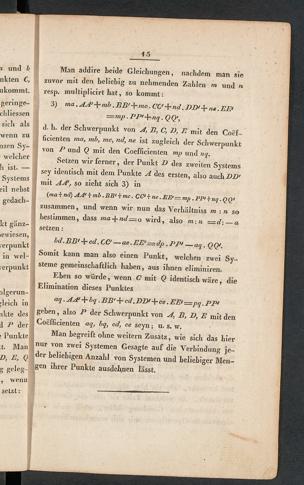 15
Man addire beide Gleichungen, nachdem man sie
zuvor mit den beliebig zu nehmenden Zahlen m und n
resp. multiplicirt hat, so kommt:
3) ma.AA'+mb.BB'+mc.CC'+nd.DD'+ne.EE'
=mp.PP'+nq.QQ',
d. h. der Schwerpunkt von A, B, C, D, E mit den Coëf-
ficienten ma, mb, mc, nd, ne ist zugleich der Schwerpunkt
von P und Q mit den Coefficienten mp und nq.
Setzen wir ferner, der Punkt D des zweiten Systems
sey identisch mit dem Punkte A des ersten, also auch DD'
mit AA', so zieht sich 3) in
(ma+nd)AA'+mb.BB'+mc.CC'+ne.EE'=mp.PP'+nq.QQ'
zusammen, und wenn wir nun das Verhältniss m:n so
bestimmen, dass ma+nd=0 wird, also m:n=d:—a
setzen:
bd.BB'+cd.CC'—ae.EE'=dp.PP'—aq.QQ'.
Somit kann man also einen Punkt, welchen zwey Sy-
steme gemeinschaftlich haben, aus ihnen eliminiren.
Eben so würde, wenn C mit Q identisch wäre, die
Elimination dieses Punktes
aq.AA'+bq.BB'+cd.DD'+ce.EE'=pq.PP'
geben, also P der Schwerpunkt von A, B, D, E mit den
Coëfficienten aq, bq, cd, ce seyn; u. s. w.
Man begreift ohne weitern Zusatz, wie sich das hier
nur von zwei Systemen Gesagte auf die Verbindung je-
der beliebigen Anzahl von Systemen und beliebiger Men-
gen ihrer Punkte ausdehnen lässt.